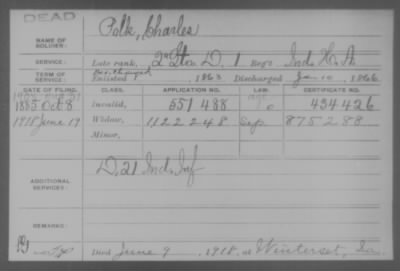 DEAD
NAME OF SOLDIER: Polk, Charles
SERVICE: Late rank, 2" Lt Co. D, 1 Reg't Ind. H. A.
TERM OF SERVICE: Enlisted 1863 Discharged Jan 10, 1866
DATE OF FILING. CLASS. APPLICATION NO. LAW. CERTIFICATE NO.
1885 Oct 8 Invalid, 551488 434426
1918 June 19 Widow, 1122248 Sep. 875288
Minor,
ADDITIONAL SERVICES: D, 21 Ind. Inf
REMARKS:
Died June 9, 1918, at Winterset, Ia.